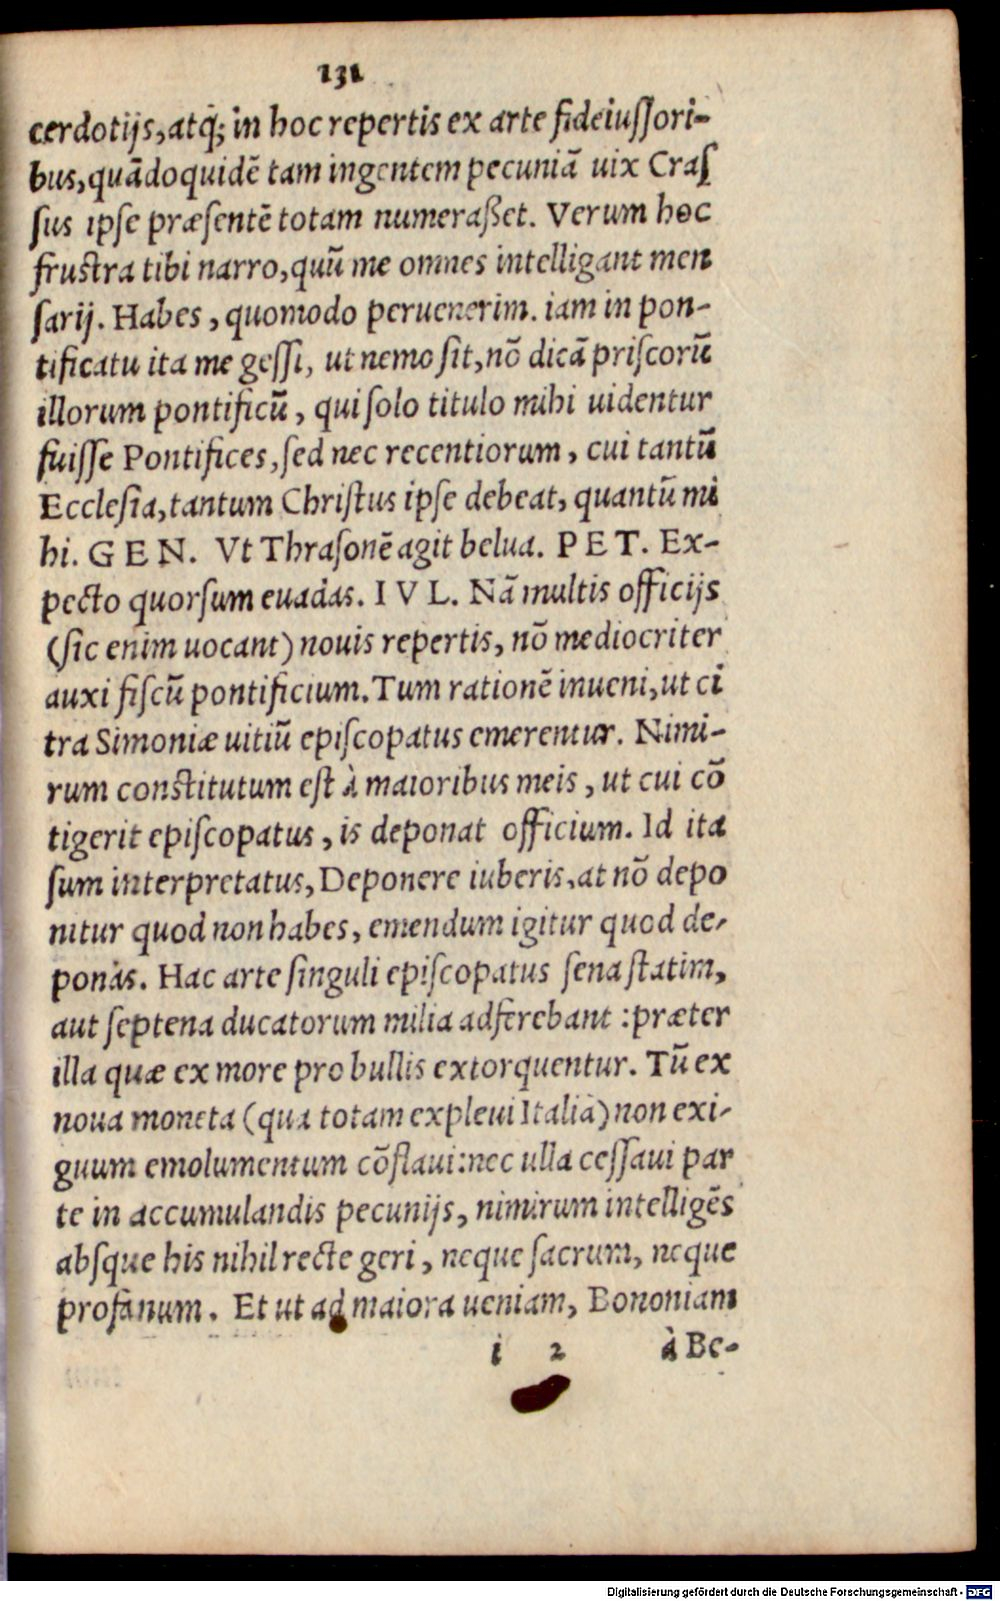 131
cerdotijs, atq́; in hoc repertis ex arte fideiuſſori-
bus, quãdoquidẽ tam ingentem pecuniã uix Craſ
ſus ipſe præſentẽ totam numeraßet. Verum hoc
fruſtra tibi narro, quũ me omnes intelligant men
ſarij. Habes, quomodo peruenerim. iam in pon-
tificatu ita me geſſi, ut nemo ſit, nõ dicã priſcorũ
illorum pontificũ, qui ſolo titulo mihi uidentur
fuiſſe Pontifices, ſed nec recentiorum, cui tantũ
Eccleſia, tantum Chriſtus ipſe debeat, quantũ mi
hi. GEN. Vt Thraſonẽ agit belua. PET. Ex-
pecto quorſum euadas. IVL. Nã multis officijs
(ſic enim uocant) nouis repertis, nõ mediocriter
auxi fiſcũ pontificium. Tum rationẽ inueni, ut ci
tra Simoniæ uitiũ epiſcopatus emerentur. Nimi-
rum conſtitutum eſt à maioribus meis, ut cui cõ
tigerit epiſcopatus, is deponat officium. Id ita
ſum interpretatus, Deponere iuberis, at nõ depo
nitur quod non habes, emendum igitur quod de-
ponas. Hac arte ſinguli epiſcopatus ſena ſtatim,
aut ſeptena ducatorum milia adferebant: præter
illa quæ ex more pro bullis extorquentur. Tũ ex
noua moneta (qua totam expleui Italiã) non exi-
guum emolumentum cõflaui: nec ulla ceſſaui par
te in accumulandis pecunijs, nimirum intelligẽs
abſque his nihil recte geri, neque ſacrum, neque
profanum. Et ut ad maiora ueniam, Bononiam
i 2 à Be-
Digitalisierung gefördert durch die Deutsche Forschungsgemeinschaft - DFG